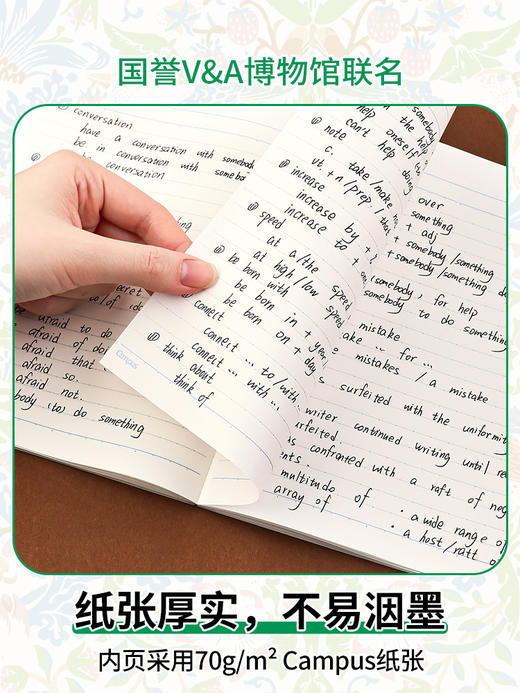 国誉V&A博物馆联名
conversation
have a conversation with somebody
be in conversation with
conversation
something
afraid to do
afraid of
afraid that
afraid so.
afraid not.
body (to) do something
help
can't help
note
c. take/make
increase
increase by +
increase to +
speed
at a/the speed
at high/low speed
be born with
be born in + year
be born on + day
connect
connect ... to/with
connect ... with ...
think about
think of
Campus
over
something
+ adj
+ somebody/something
somebody, for help
somebody to do something
mistake
for ...
mistakes / a mistake
surfeited with the
writer continued writing until
surfeited.
confronted with a raft of
multitude of
array of
· a wide range of
· a host/raft of
纸张厚实，不易洇墨
内页采用70g/m² Campus纸张